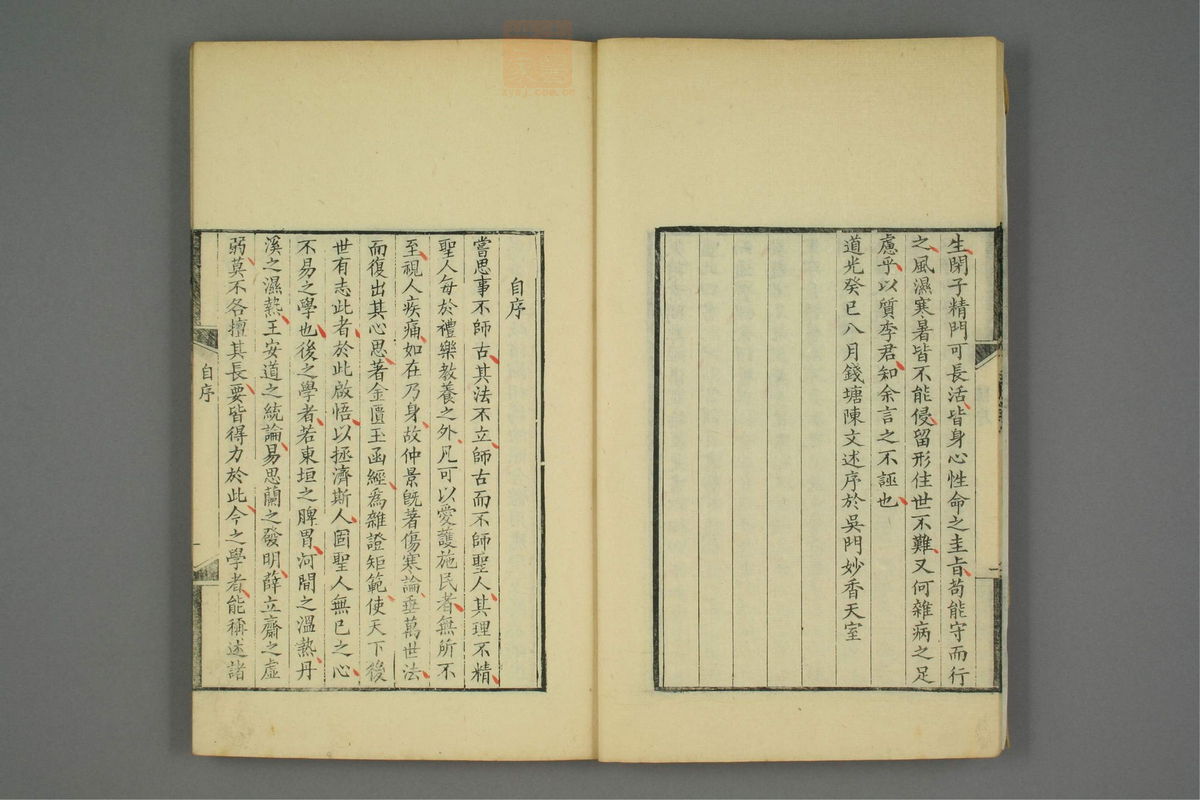 生閑子精門可長活皆身心性命之圭旨苟能守而行
之風濕寒暑皆不能侵留形住世不難又何雜病之足
慮乎以質李君知余言之不誣也
道光癸巳八月錢塘陳文述序於吳門妙香天室
自序
嘗思事不師古其法不立師古而不師聖人其理不精
聖人每於禮樂教養之外凡可以愛護施民者無所不
至視人疾痛如在乃身故仲景既著傷寒論垂萬世法
而復出其心思著金匱玉函經爲雜證矩範使天下後
世有志此者於此啟悟以拯濟斯人固聖人無已之心
不易之學也後之學者若東垣之脾胃河間之溫熱丹
溪之濕熱王安道之統論易思蘭之發明薛立齋之虛
弱莫不各擅其長要皆得力於此今之學者能稱述諸
自序
一